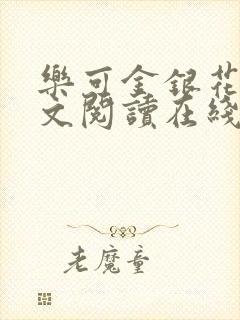 樂可金銀花
文閱讀在綫
老魔童